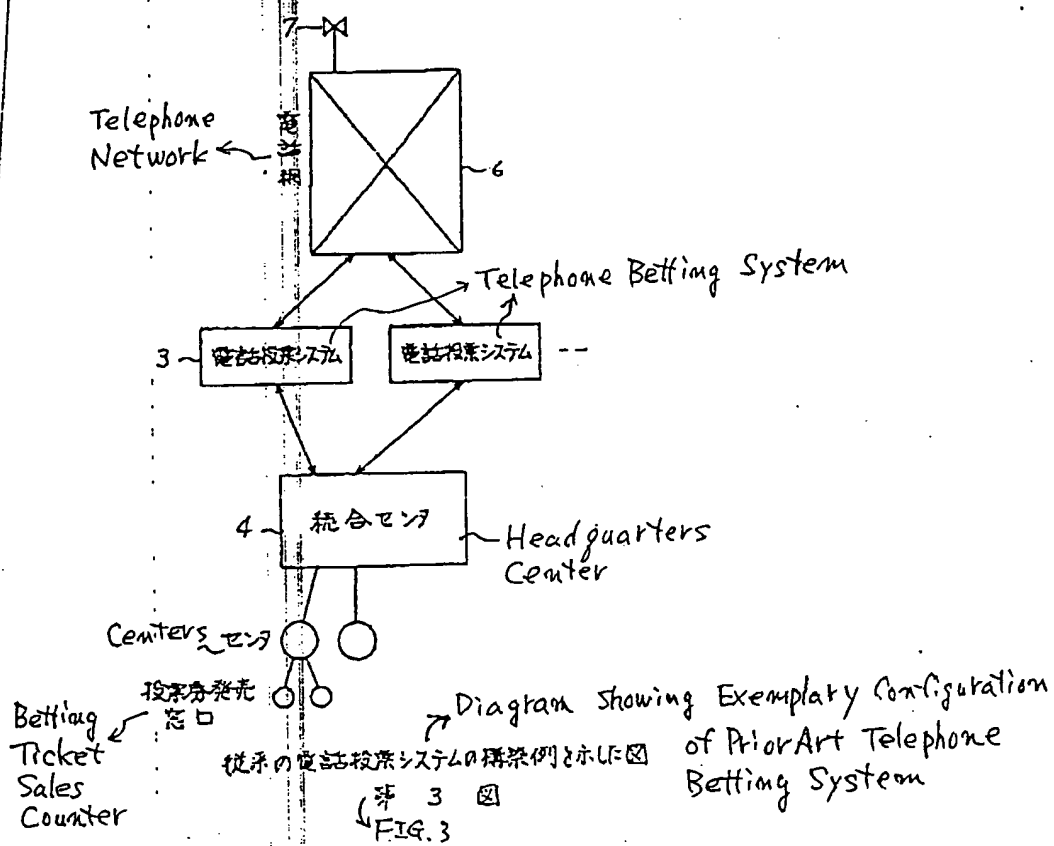 7
Telephone
Network
電話網
6
Telephone Betting System
3
電話投票システム
電話投票システム
4
統合センタ
Headquarters
Center
Centers
センタ
投票券発売
窓口
Betting
Ticket
Sales
Counter
Diagram Showing Exemplary Configuration
of Prior Art Telephone
Betting System
従来の電話投票システムの構築例を示した図
第 3 図
FIG.3